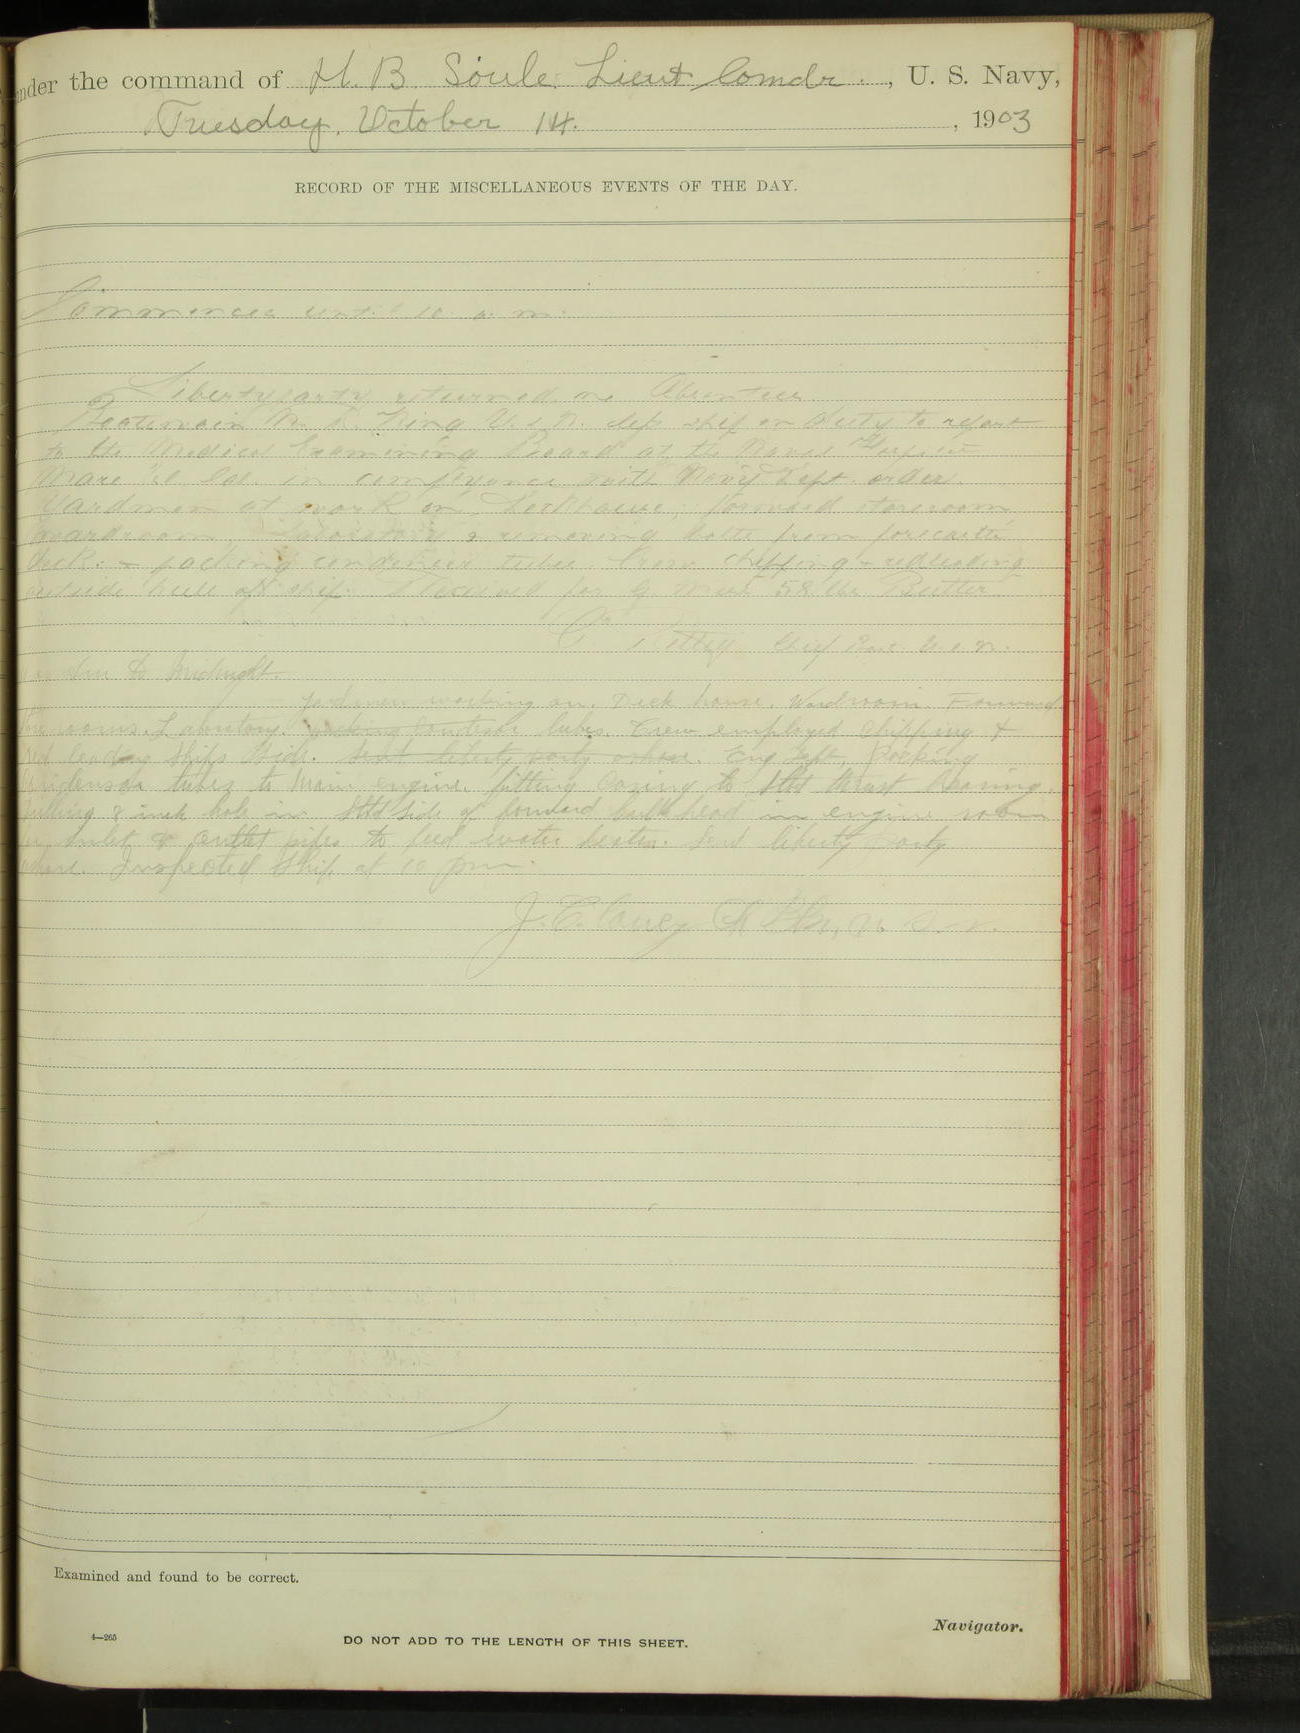 under the command of H. B. Soule Lieut Comdr., U. S. Navy,
Tuesday, October 14., 1903
RECORD OF THE MISCELLANEOUS EVENTS OF THE DAY.
Commences until 10 a. m.
Liberty party returned no Absentees.
Boatswain King U.S.N. left ship on duty to report
to the Medical Examining Board at the Naval Hospital
Mare Isl. Cal. in complyance with Navy Dept. order.
Yardmen at work on Deckhouse, forward storeroom,
wardroom, Laboratory & removing bolts from forecastle
deck. & packing condenser tubes. Crew chipping & redleading
outside hull of ship. Received for G. Mess 58 lbs Butter
Chief U.S.N.
to Midnight.
Yard men working on. Deck house. Wardroom. Forward
rooms. Labratory. packing Condenser tubes. Crew employed chipping &
red leading Ships Side. Sent liberty party ashore. Eng Dept, Packing
Condenser tubes to Main engine. fitting Casing to Stbd thrust bearing.
drilling 8 inch hole in Stbd Side of forward bulkhead in engine room
for Inlet & outlet pipes to feed water heater. Sent liberty party
ashore. Inspected Ship at 10 pm.
J. E. Carey U. S. N.
Examined and found to be correct.
Navigator.
4—265
DO NOT ADD TO THE LENGTH OF THIS SHEET.